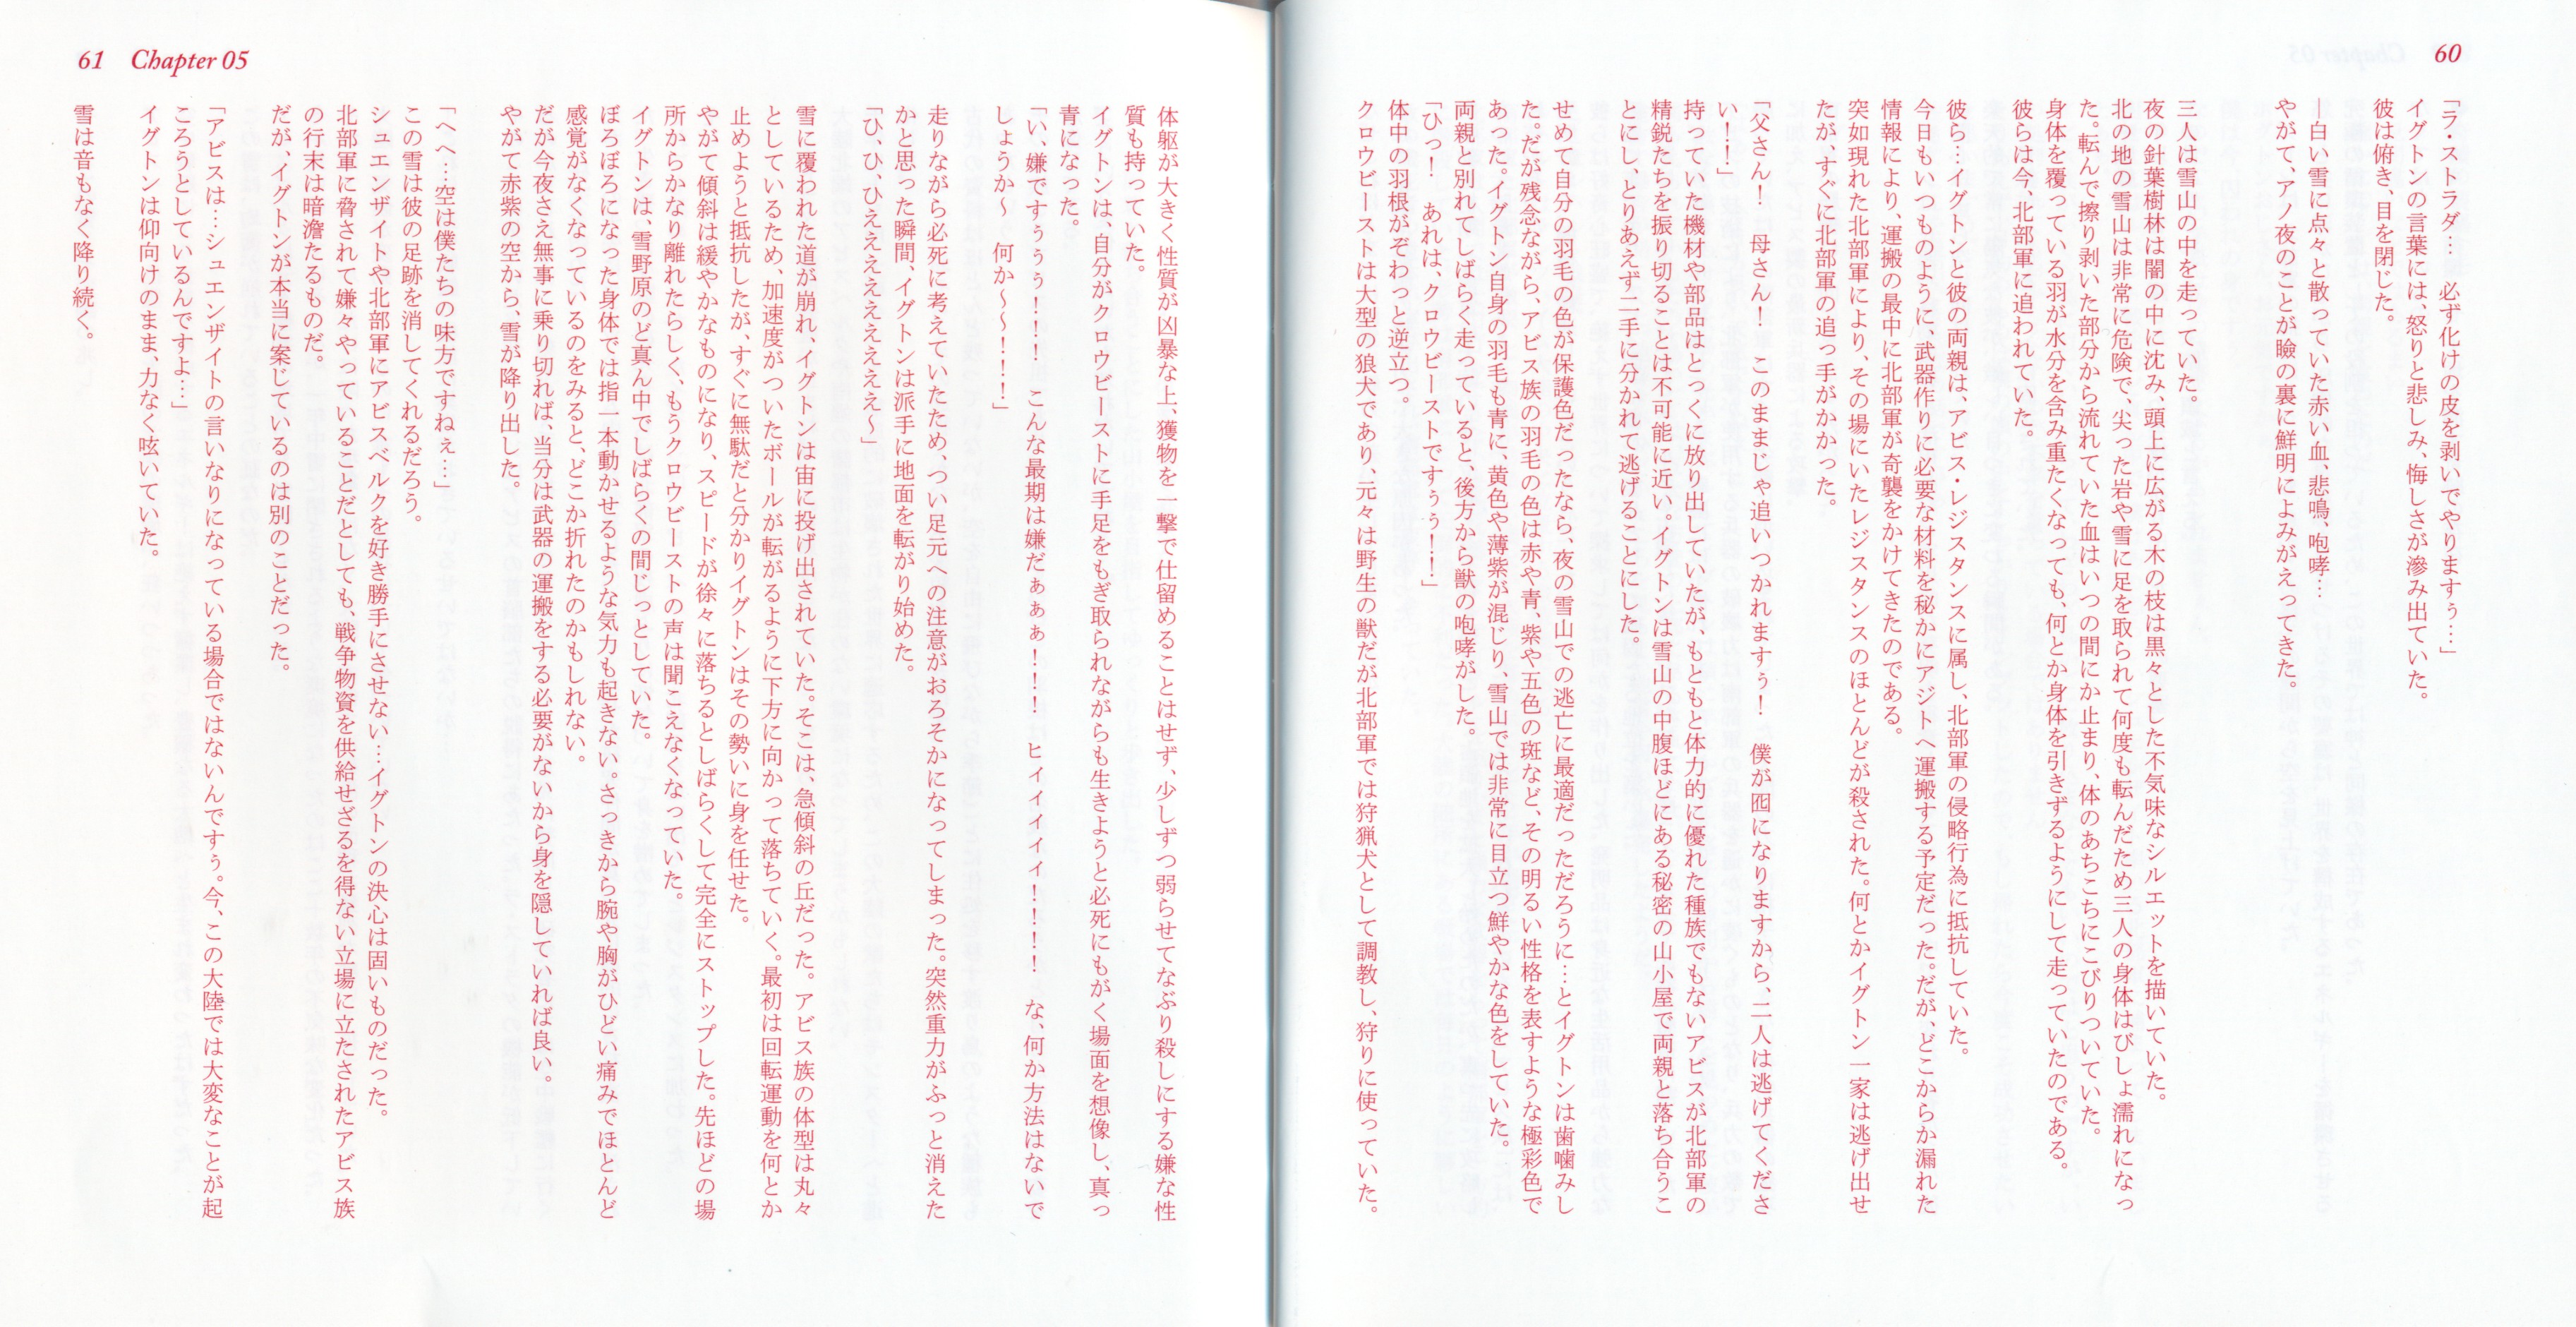 60
「ラ・ストラダ… 必ず化けの皮を剥いでやりますぅ…」
イグトンの言葉には、怒りと悲しみ、悔しさが滲み出ていた。
彼は俯き、目を閉じた。
―白い雪に点々と散っていた赤い血、悲鳴、咆哮…
やがて、アノ夜のことが瞼の裏に鮮明によみがえってきた。
三人は雪山の中を走っていた。
夜の針葉樹林は闇の中に沈み、頭上に広がる木の枝は黒々とした不気味なシルエットを描いていた。
北の地の雪山は非常に危険で、尖った岩や雪に足を取られて何度も転んだため三人の身体はびしょ濡れになっ
た。転んで擦り剥いた部分から流れていた血はいつの間にか止まり、体のあちこちにこびりついていた。
身体を覆っている羽が水分を含み重たくなっても、何とか身体を引きずるようにして走っていたのである。
彼らは今、北部軍に追われていた。
彼ら…イグトンと彼の両親は、アビス・レジスタンスに属し、北部軍の侵略行為に抵抗していた。
今日もいつものように、武器作りに必要な材料を秘かにアジトへ運搬する予定だった。だが、どこからか漏れた
情報により、運搬の最中に北部軍が奇襲をかけてきたのである。
突如現れた北部軍により、その場にいたレジスタンスのほとんどが殺された。何とかイグトン一家は逃げ出せ
たが、すぐに北部軍の追っ手がかかった。
「父さん！ 母さん！ このままじゃ追いつかれますぅ！ 僕が囮になりますから、二人は逃げてくださ
い！！」
持っていた機材や部品はとっくに放り出していたが、もともと体力的に優れた種族でもないアビスが北部軍の
精鋭たちを振り切ることは不可能に近い。イグトンは雪山の中腹ほどにある秘密の山小屋で両親と落ち合うこ
とにし、とりあえず二手に分かれて逃げることにした。
せめて自分の羽毛の色が保護色だったなら、夜の雪山での逃亡に最適だっただろうに…とイグトンは歯噛みし
た。だが残念ながら、アビス族の羽毛の色は赤や青、紫や五色の斑など、その明るい性格を表すような極彩色で
あった。イグトン自身の羽毛も青に、黄色や薄紫が混じり、雪山では非常に目立つ鮮やかな色をしていた。
両親と別れてしばらく走っていると、後方から獣の咆哮がした。
「ひっ！ あれは、クロウビーストですぅぅ！！」
体中の羽根がぞわっと逆立つ。
クロウビーストは大型の狼犬であり、元々は野生の獣だが北部軍では狩猟犬として調教し、狩りに使っていた。
61 Chapter 05
体躯が大きく性質が凶暴な上、獲物を一撃で仕留めることはせず、少しずつ弱らせてなぶり殺しにする嫌な性
質も持っていた。
イグトンは、自分がクロウビーストに手足をもぎ取られながらも生きようと必死にもがく場面を想像し、真っ
青になった。
「い、嫌ですぅぅぅ！！！ こんな最期は嫌だぁぁぁ！！！ ヒィィィィィ！！！！ な、何か方法はないで
しょうか～ 何か～～！！！」
走りながら必死に考えていたため、つい足元への注意がおろそかになってしまった。突然重力がふっと消えた
かと思った瞬間、イグトンは派手に地面を転がり始めた。
「ひ、ひ、ひえええええええええ～」
雪に覆われた道が崩れ、イグトンは宙に投げ出されていた。そこは、急傾斜の丘だった。アビス族の体型は丸々
としているため、加速度がついたボールが転がるように下方に向かって落ちていく。最初は回転運動を何とか
止めようと抵抗したが、すぐに無駄だと分かりイグトンはその勢いに身を任せた。
やがて傾斜は緩やかなものになり、スピードが徐々に落ちるとしばらくして完全にストップした。先ほどの場
所からかなり離れたらしく、もうクロウビーストの声は聞こえなくなっていた。
イグトンは、雪野原のど真ん中でしばらくの間じっとしていた。
ぼろぼろになった身体では指一本動かせるような気力も起きない。さっきから腕や胸がひどい痛みでほとんど
感覚がなくなっているのをみると、どこか折れたのかもしれない。
だが今夜さえ無事に乗り切れば、当分は武器の運搬をする必要がないから身を隠していれば良い。
やがて赤紫の空から、雪が降り出した。
「へへ…空は僕たちの味方ですねぇ…」
この雪は彼の足跡を消してくれるだろう。
シュエンザイトや北部軍にアビスベルクを好き勝手にさせない…イグトンの決心は固いものだった。
北部軍に脅されて嫌々やっていることだとしても、戦争物資を供給せざるを得ない立場に立たされたアビス族
の行末は暗澹たるものだ。
だが、イグトンが本当に案じているのは別のことだった。
「アビスは…シュエンザイトの言いなりになっている場合ではないんですぅ。今、この大陸では大変なことが起
ころうとしているんですよ…」
イグトンは仰向けのまま、力なく呟いていた。
雪は音もなく降り続く。